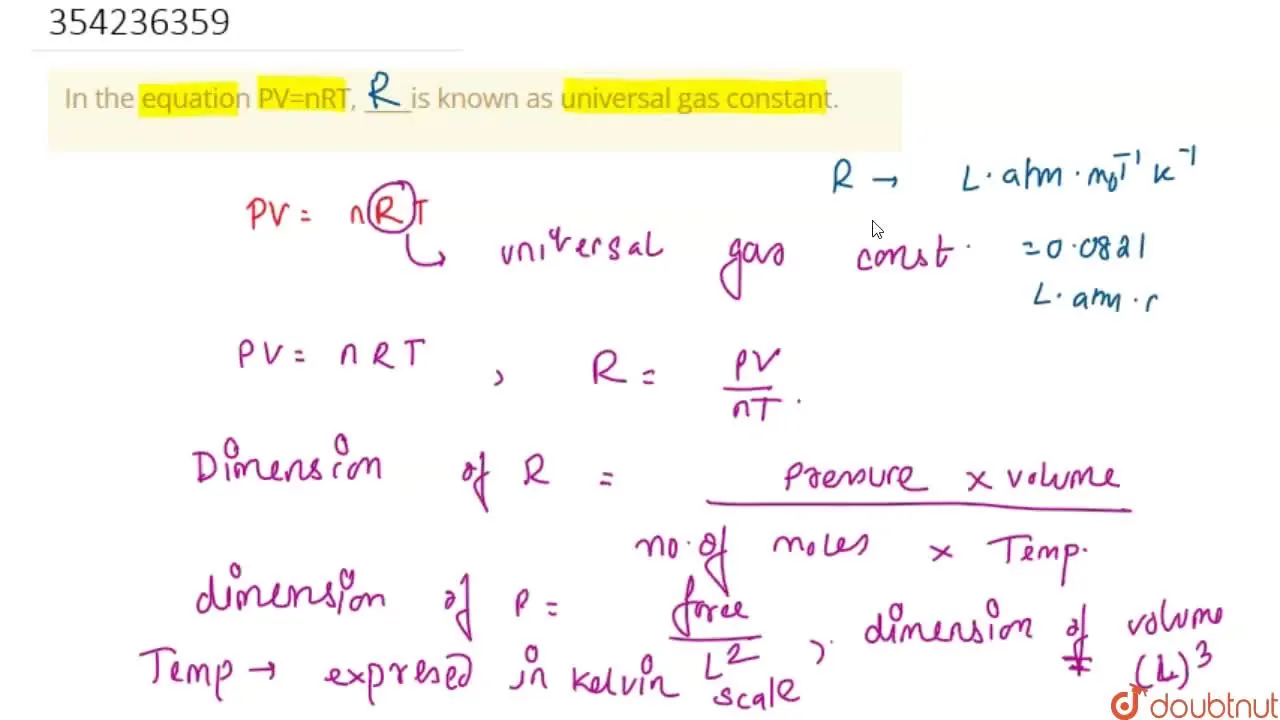 354236359
In the equation PV=nRT, R is known as universal gas constant.
R → L·atm·mol⁻¹ K⁻¹
PV = nRT
universal gas const.
= 0.0821
L·atm·
PV = nRT , R = PV/nT.
Dimension of R = pressure × volume
no. of moles × Temp.
dimension of P = force/L² , dimension of volume
(L)³
Temp → expresed in kelvin scale
doubtnut